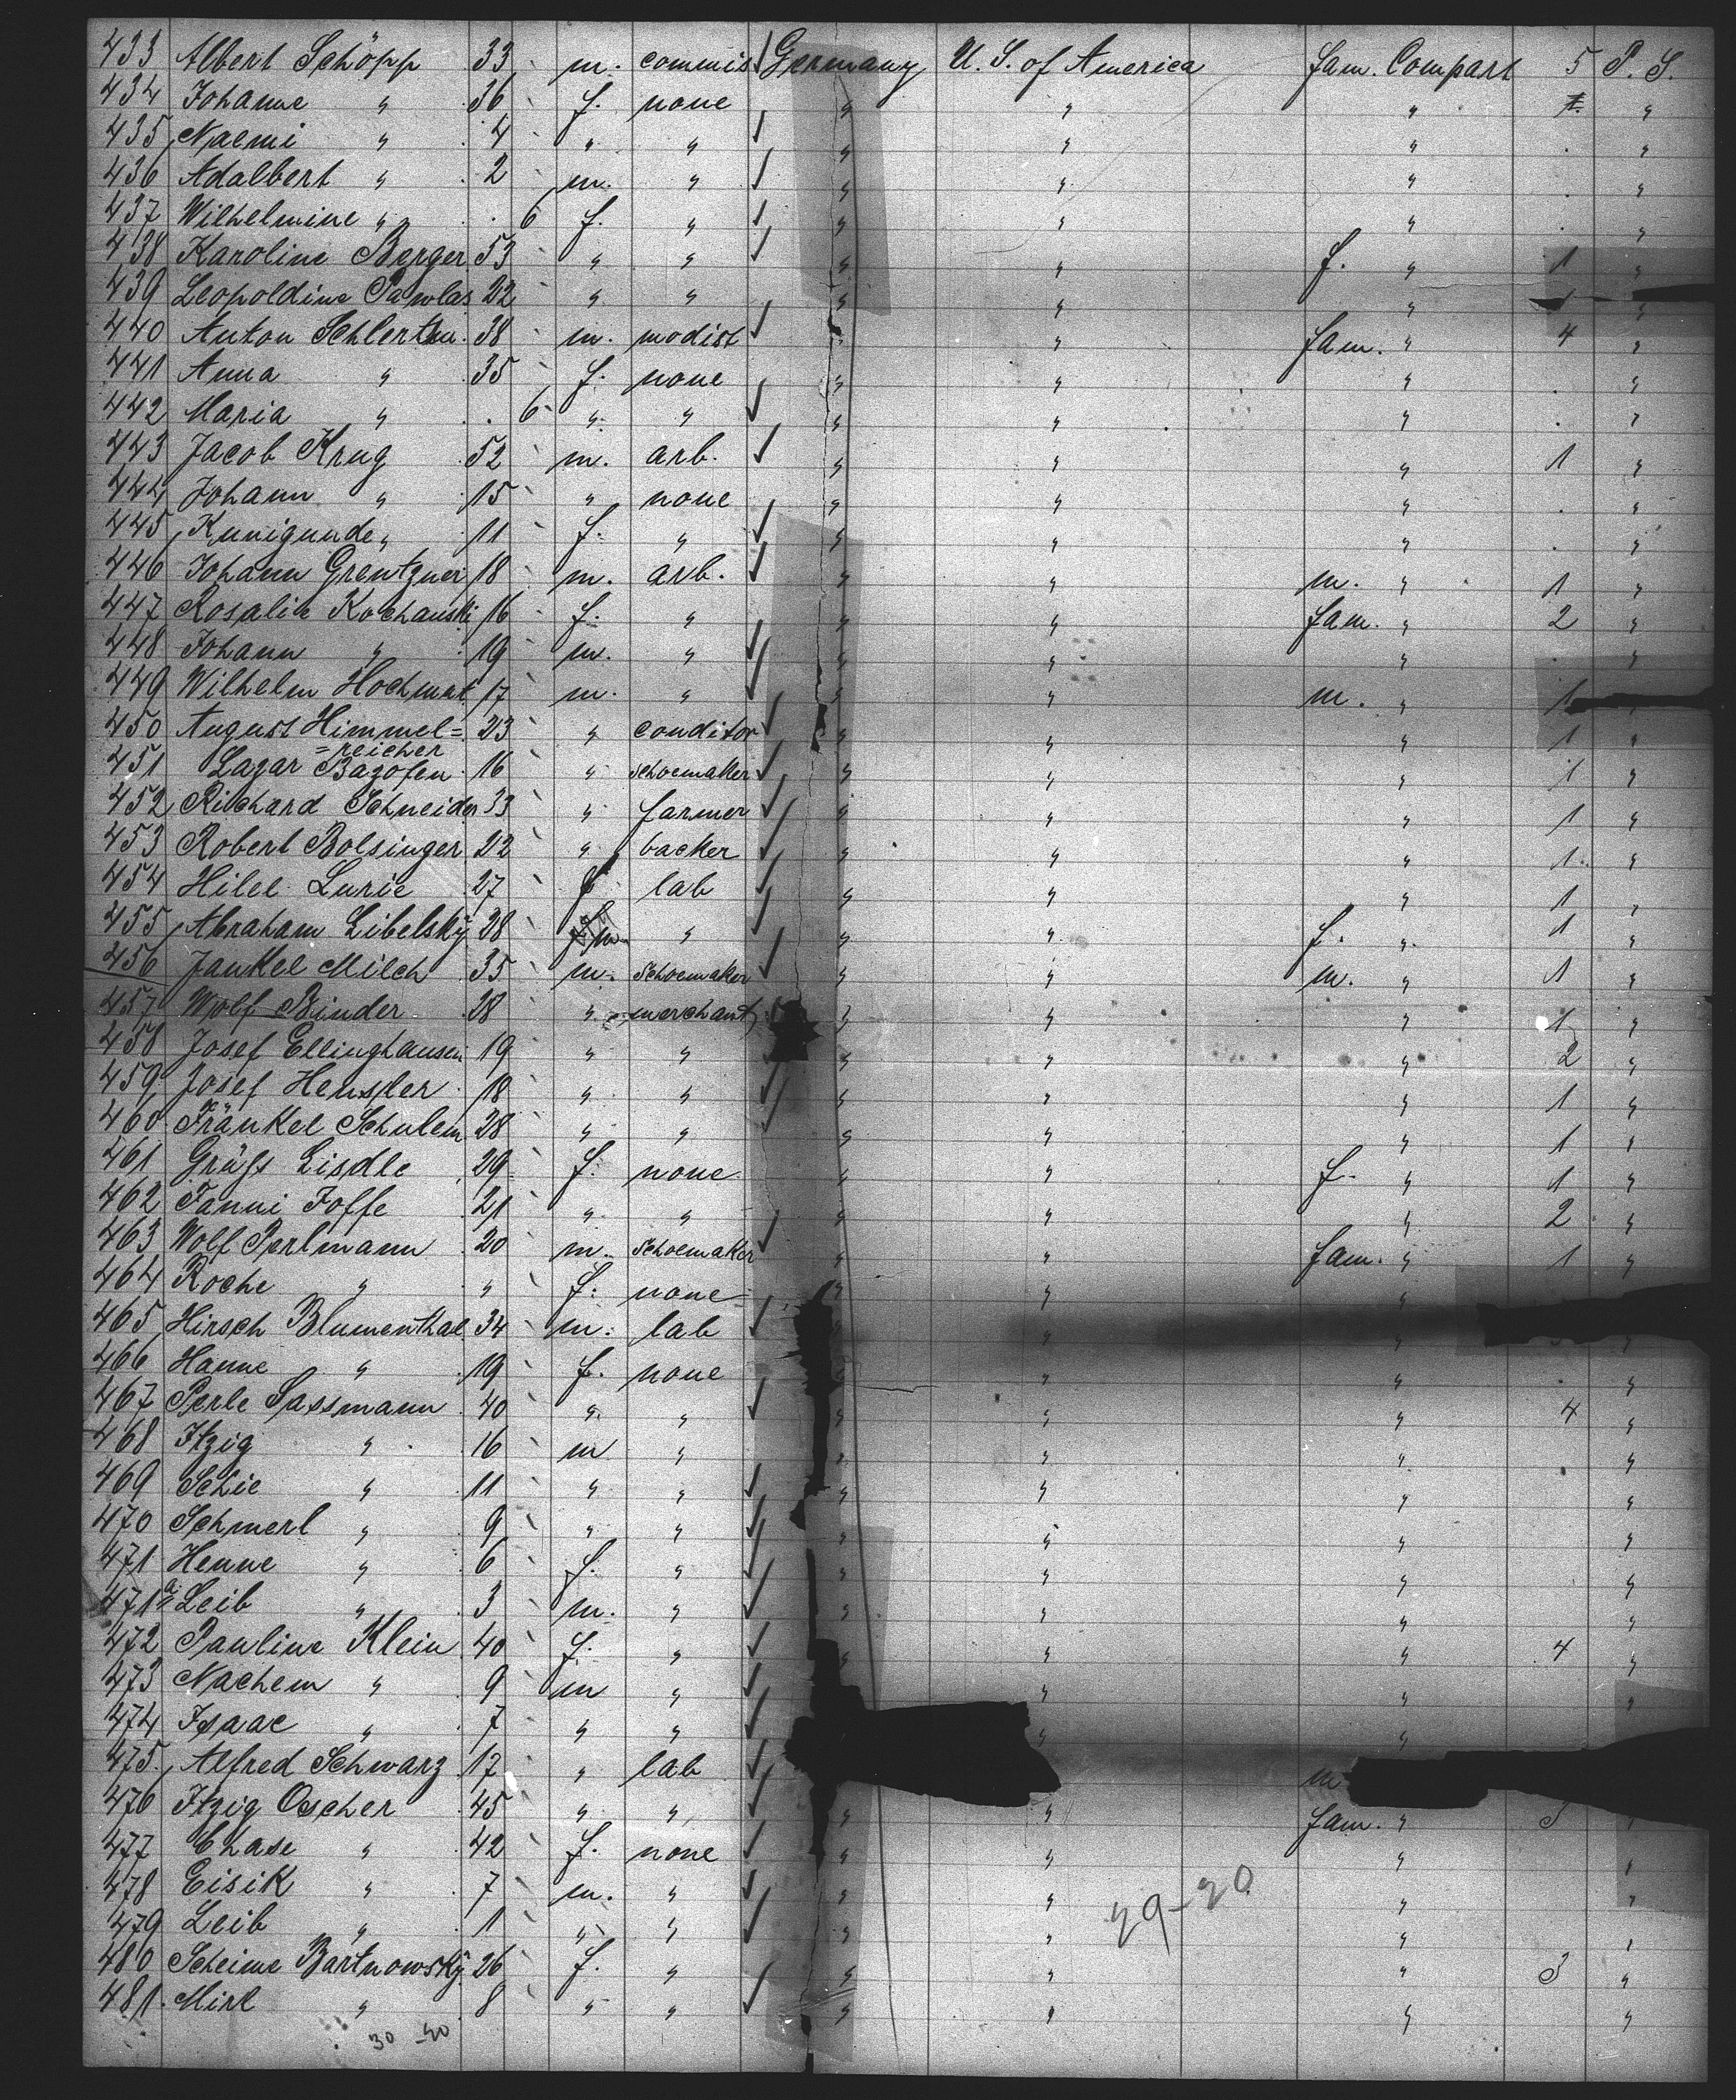 433 Albert Schöpp 33 m. commis Germany U. S. of America fam. Compart 5 P. S.
434 Johanne " 36 f. none " " " "
435 Naemi " 4 " " " " " "
436 Adalbert " 2 m. " " " " "
437 Wilhelmine " 6 f. " " " " "
438 Karoline Berger 53 " " " " f. " 1 "
439 Leopoldine Pawlas 22 " " " " " 1 "
440 Anton 38 m. modist " " fam. " 4 "
441 Anna " 35 f. none " " " "
442 Maria " 6 " " " " " "
443 Jacob Krug 52 m. arb. " " " 1 "
444 Johann " 15 " none " " " "
445 Kunigunde " 11 f. " " " " "
446 Johann Grentzner 18 m. arb. " " m. " 1 "
447 Rosalie Kochanski 16 f. " " " fam. " 2 "
448 Johann " 19 m. " " " " "
449 Wilhelm Hochmat 17 m. " " " m. " 1 "
450 August Himmel= 23 " conditor " " " 1 "
=reicher
451 Lazar Bazofen 16 " schoemaker " " " 1 "
452 Richard Schneider 33 " farmer " " " 1 "
453 Robert Bolsinger 22 " backer " " " 1 "
454 Hilel Lurie 27 f lab " " " 1 "
455 Abraham Libelsky 28 m " " " f. " 1 "
456 Jankel Milch 35 m. schoemaker " " m. " 1 "
457 Wolf Binder 28 " merchant " " " 1 "
458 Josef Ellinghausen 19 " " " " " 2 "
459 Josef Hensler 18 " " " " " 1 "
460 Fränkel Schulem 28 " " " " " 1 "
461 Lisdle 29 f. none " " f. " 1 "
462 Fanni Joffe 21 " " " " " 2 "
463 Wolf Perlmann 20 m. schoemaker " " fam. " 1 "
464 Roche " " f. none " " "
465 Hirsch Blumenthal 34 m. lab " " " "
466 Hanne " 19 f. none " " " "
467 Perle Sassmann 40 " " " " " 4 "
468 Itzig " 16 m " " " " "
469 Schie " 11 " " " " " "
470 Schmerl " 9 " " " " " "
471 Henne " 6 f. " " " " "
471a Leib " 3 m. " " " " "
472 Pauline Klein 40 f. " " " " 4 "
473 Nachem " 9 m " " " " "
474 Isaac " 7 " " " "
475. Alfred Schwarz 17 " lab m
476 Itzig Oscher 45 " " " " fam. " 3 "
477 Chase " 42 f. none " " " "
478 Eisik " 7 m. " " " " "
479 Leib " 1 " " " " " "
480 Scheine Bartnowsky 26 f. " " " " 3 "
481. Mirl " 8 " " " " " "